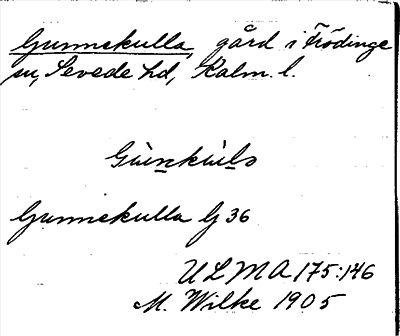 Gunnekulla, gård i Frödinge
sn, Sevede hd, Kalm. l.
Gunnekulla Gj 36
ULMA 175:146
M. Wilke 1905